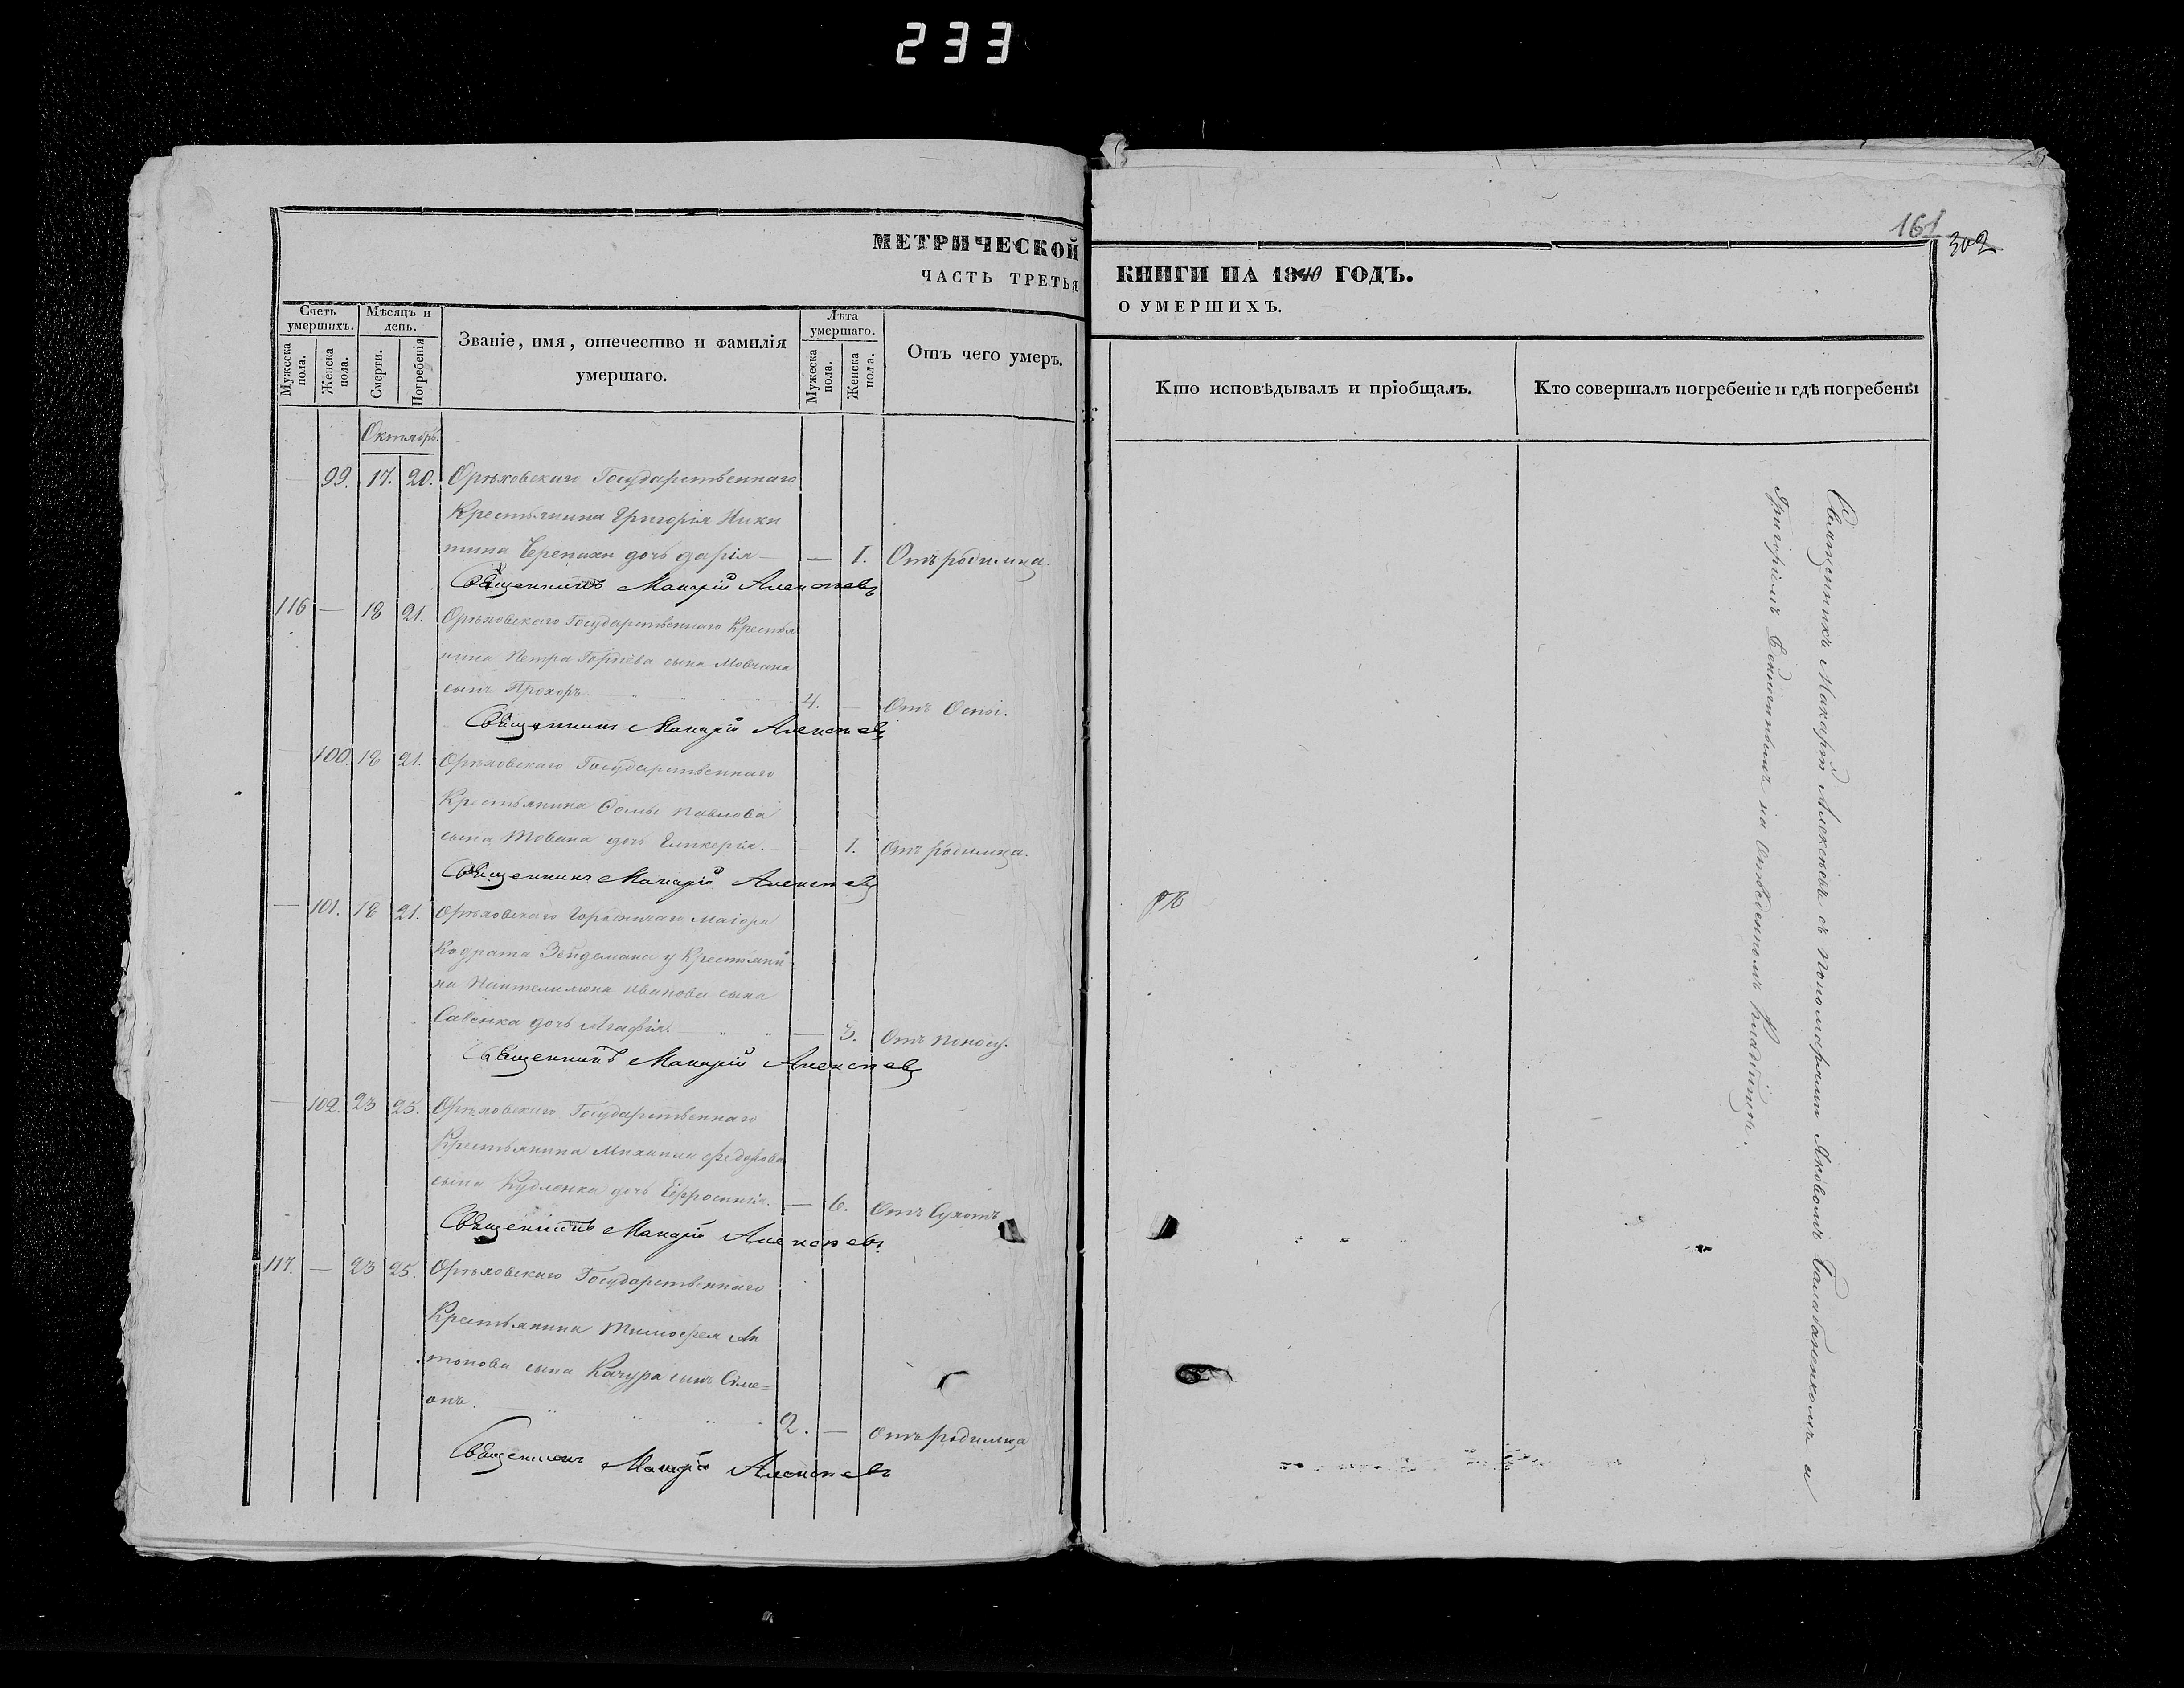 233
161
302
МЕТРИЧЕСКОЙ
ЧАСТЬ ТРЕТЬЯ
КНИГИ НА 1840 ГОДЪ.
О УМЕРШИХЪ.
Счетъ умершихъ.
Мужеска пола.
Женска пола.
Мѣсяцъ и день.
Смерти.
Погребенія
Званіе, имя, отечество и фамилія умершаго.
Лѣта умершаго.
Мужеска пола.
Женска пола.
Отъ чего умеръ.
Кто исповѣдывалъ и пріобщалъ.
Кто совершалъ погребеніе и гдѣ погребены
Октябрь.
— 99. 17. 20. Орѣховскаго Государственнаго
Крестьянина Григорія Ники
тина Черепахи дочь Дарія — — 1. Отъ родимца.
Священникъ Макарій Алексѣевъ
116 — 18 21. Орѣховскаго Государственнаго Крестья
нина Петра Гордѣева сына Мовчана
сынъ Прохоръ. 4. — Отъ Оспы.
Священникъ Макарій Алексѣевъ
100. 18 21. Орѣховскаго Государственнаго
Крестьянина Ѳомы Павлова
сына дочь Гликерія. 1. Отъ родимца.
Священникъ Макарій Алексѣевъ
— 101. 18 21. Орѣховскаго Маіора
Кодрата Зейдемана у Крестьяни
на Пантелимона Иванова сына
Савенка дочь Агафія. — 3. Отъ поносу.
Священникъ Макарій Алексѣевъ
— 102. 23 25. Орѣховскаго Государственнаго
Крестьянина Михаила Федорова
сына Кудленка дочь Ефросинія. — 6. Отъ Сухотъ
Священникъ Макарій Алексѣевъ
117. — 23 25. Орѣховскаго Государственнаго
Крестьянина Тимофея Ан
тонова сына Качура сынъ Симе=
онъ. 2. — Отъ родимца
Священникъ Макарій Алексѣевъ
Священникъ Макарій Алексѣевъ съ Пономарями Яковомъ Балабаненкомъ и
Григоріемъ на отведенномъ Кладбищѣ.